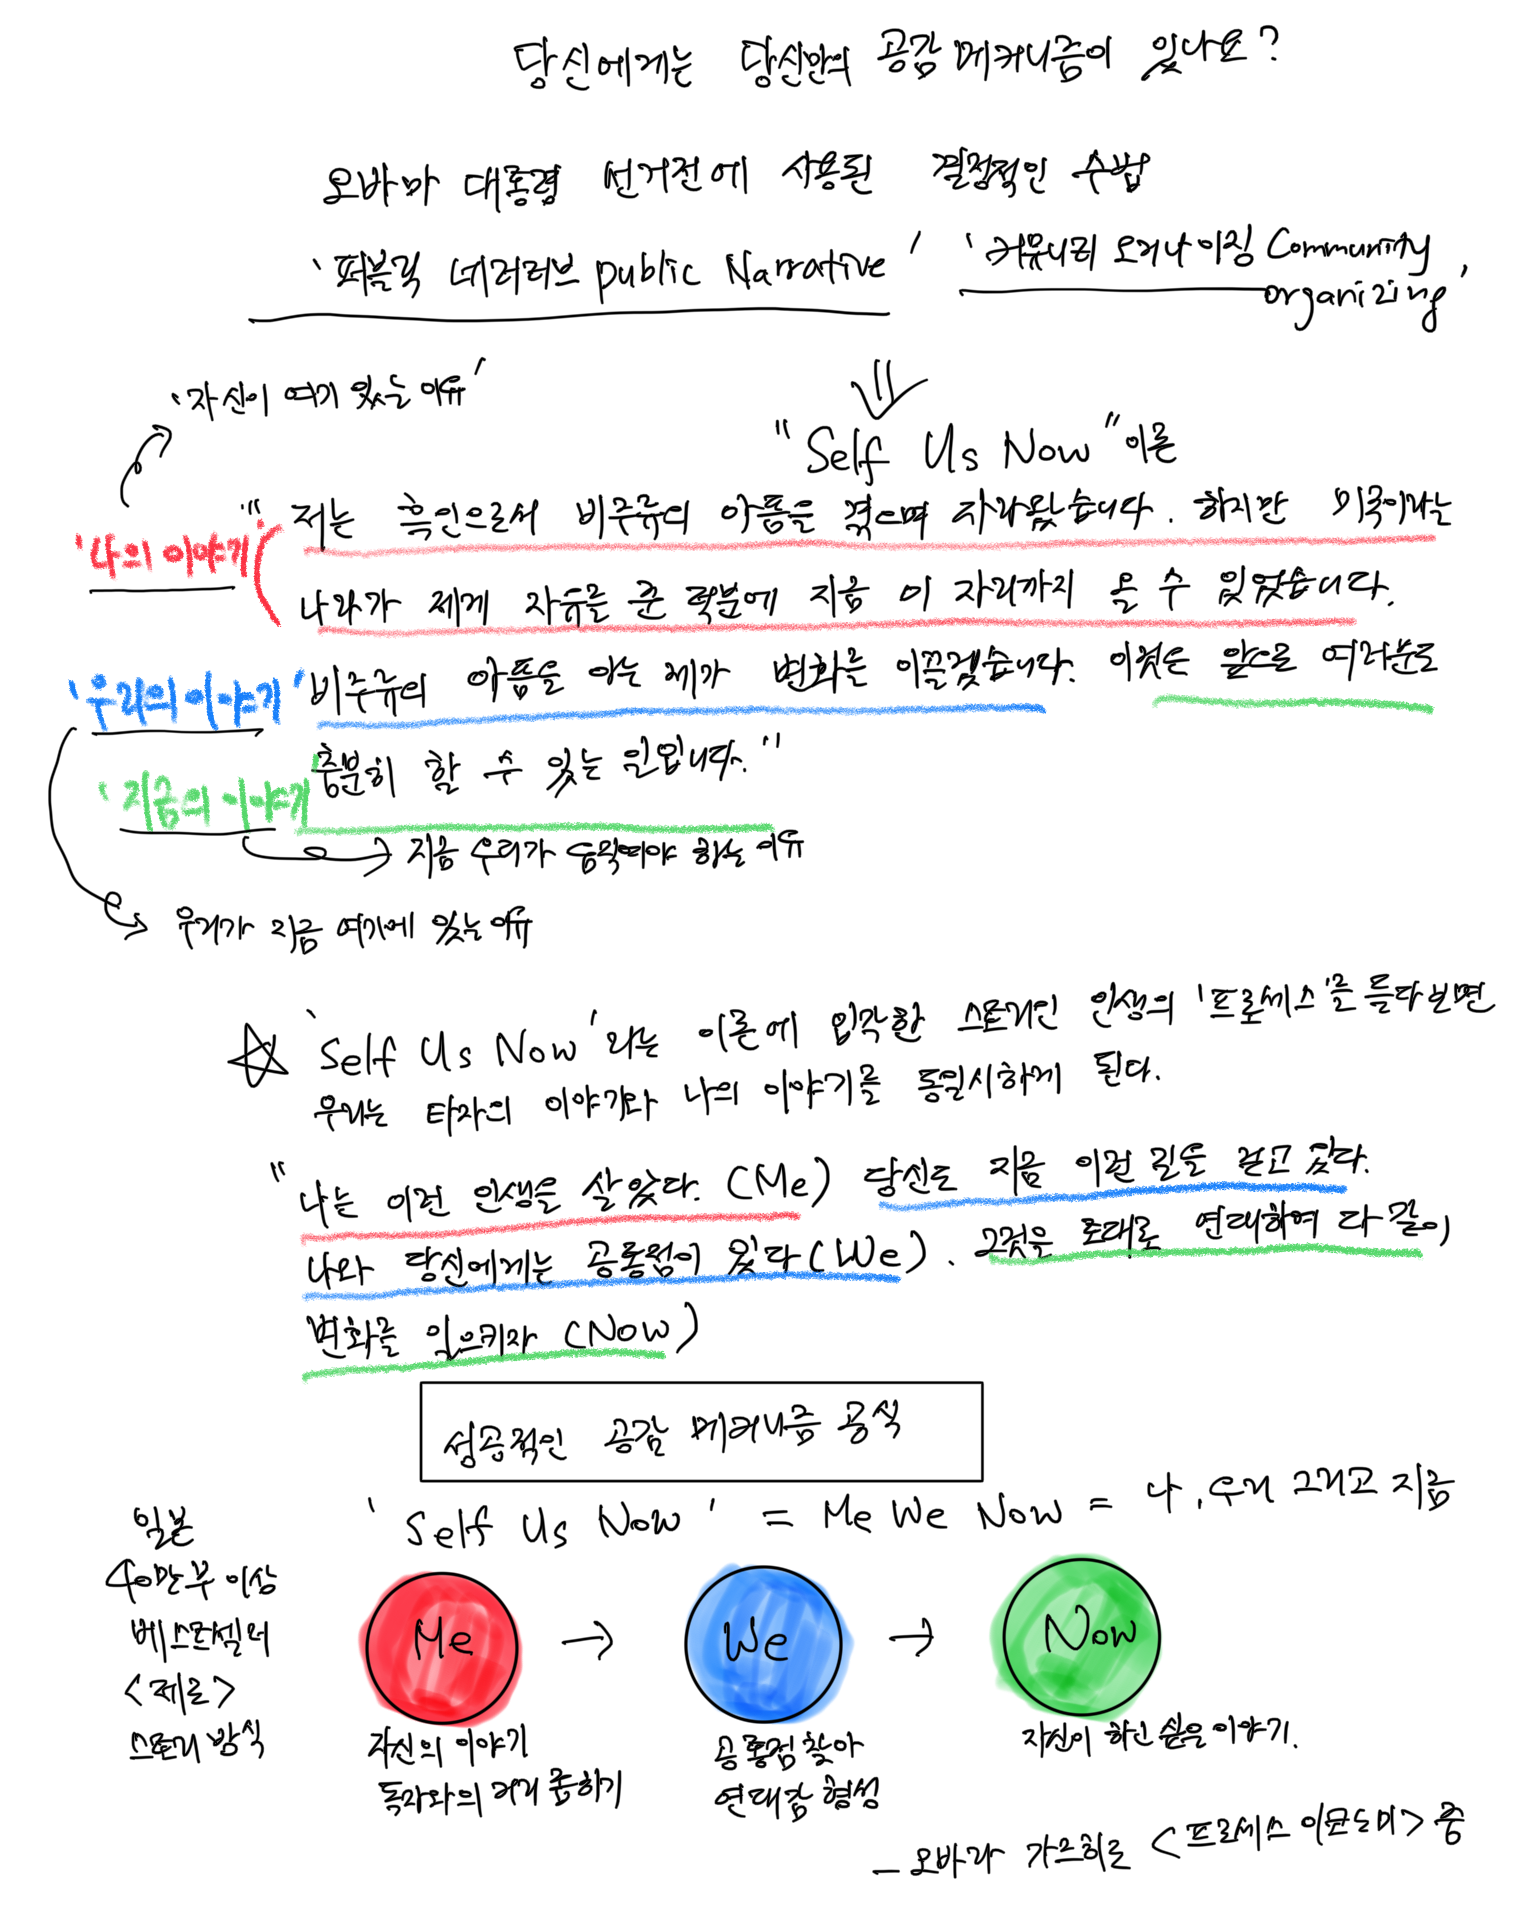 당신에게는 당신만의 공감 메커니즘이 있나요?
오바마 대통령 선거전에 사용된 결정적인 수법
'퍼블릭 네러티브 public Narrative' '커뮤니티 오거나이징 Community
organizing'
'자신이 여기 있는 이유'
"Self Us Now" 이론
'나의 이야기'
"저는 흑인으로서 비주류의 아픔을 겪으며 자라왔습니다. 하지만 미국이라는
나라가 제게 자유를 준 덕분에 지금 이 자리까지 올 수 있었습니다.
'우리의 이야기'
비주류의 아픔을 아는 제가 변화를 이끌겠습니다. 이것은 앞으로 여러분도
충분히 할 수 있는 일입니다."
'지금의 이야기'
지금 우리가 움직여야 하는 이유
우리가 지금 여기에 있는 이유
☆ 'Self Us Now'라는 이론에 입각한 스토리인 인생의 '프로세스'를 들다보면
우리는 타자의 이야기와 나의 이야기를 동일시하게 된다.
"나는 이런 인생을 살았다. (Me) 당신도 지금 이런 길을 걷고 있다.
나와 당신에게는 공통점이 있다 (We). 그것을 토대로 연대하여 다 같이
변화를 일으키자 (Now)
성공적인 공감 메커니즘 공식
'Self Us Now' = Me We Now = 나, 우리 그리고 지금
일본
40만부 이상
베스트셀러
<제로>
스토리 방식
Me → We → Now
자신의 이야기
독자와의 거리 좁히기
공통점 찾아
연대감 형성
자신이 하고 싶은 이야기.
- 오바라 가즈히로 <프로세스 이코노미> 중